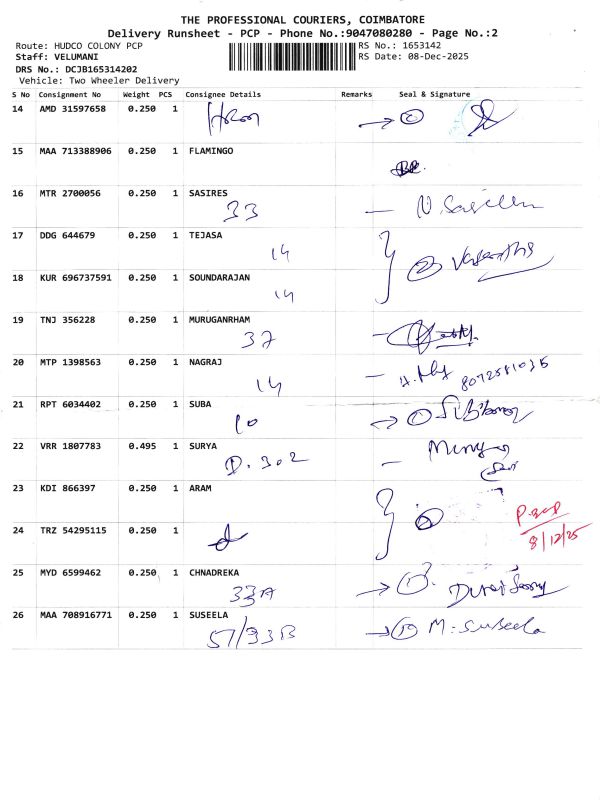 THE PROFESSIONAL COURIERS, COIMBATORE
Delivery Runsheet - PCP - Phone No.:9047080280 - Page No.:2
Route: HUDCO COLONY PCP RS No.: 1653142
Staff: VELUMANI RS Date: 08-Dec-2025
DRS No.: DCJB165314202
Vehicle: Two Wheeler Delivery
S No Consignment No Weight PCS Consignee Details Remarks Seal & Signature
14 AMD 31597658 0.250 1
15 MAA 713388906 0.250 1 FLAMINGO
16 MTR 2700056 0.250 1 SASIRES
33
17 DDG 644679 0.250 1 TEJASA
14 2 Vasantha
18 KUR 696737591 0.250 1 SOUNDARAJAN
14
19 TNJ 356228 0.250 1 MURUGANRHAM
37
20 MTP 1398563 0.250 1 NAGRAJ
14 8072581035
21 RPT 6034402 0.250 1 SUBA
10
22 VRR 1807783 0.495 1 SURYA
D. 302
23 KDI 866397 0.250 1 ARAM
24 TRZ 54295115 0.250 1
8/12/25
25 MYD 6599462 0.250 1 CHNADREKA
33A
26 MAA 708916771 0.250 1 SUSEELA
57/33B M. Suseela